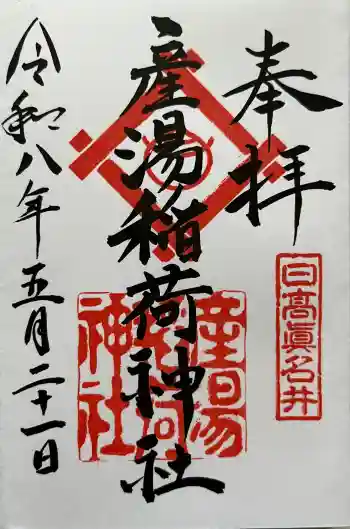 奉拝
日高眞名井
産湯稲荷神社
産湯稲荷神社
令和八年五月二十一日